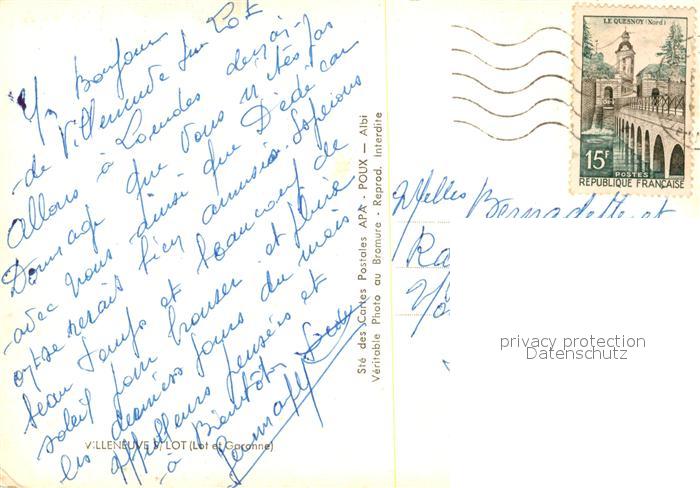 Un Bonjour
de Villeneuve sur Lot
allons à Lourdes
Dommage que vous n'êtes pas
avec nous ainsi que Dédé car
on se serait bien amusé.
beau temps et beaucoup de
soleil pour
les derniers jours du mois
Meilleurs pensées et
à Bientôt
VILLENEUVE S/ LOT (Lot et Garonne)
Sté des Cartes Postales APA - POUX — Albi
Véritable Photo au Bromure - Reprod. Interdite
LE QUESNOY (Nord)
15F
POSTES
RÉPUBLIQUE FRANÇAISE
Melles Bernadette et
privacy protection
Datenschutz